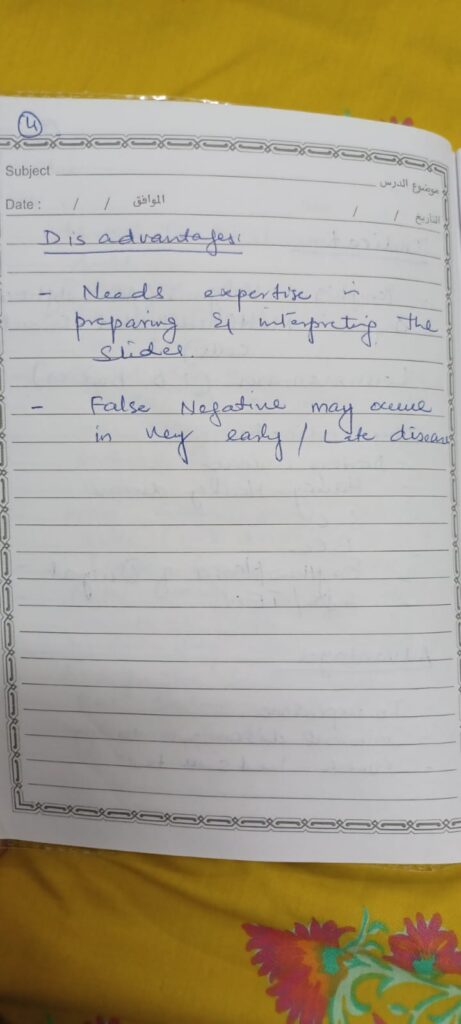 4
Subject موضوع الدرس
Date : / / الموافق / / التاريخ
Disadvantages:
- Needs expertise in
preparing & interpreting the
slides.
- False Negative may occur
in very early / Late disease